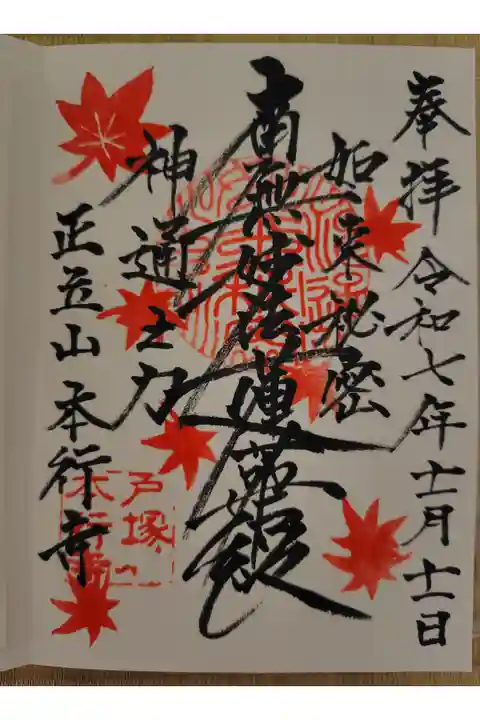 奉拝 令和七年十一月十一日
如来秘密
南無妙法蓮華経
神通之力
正立山 本行寺
戸塚
本行寺